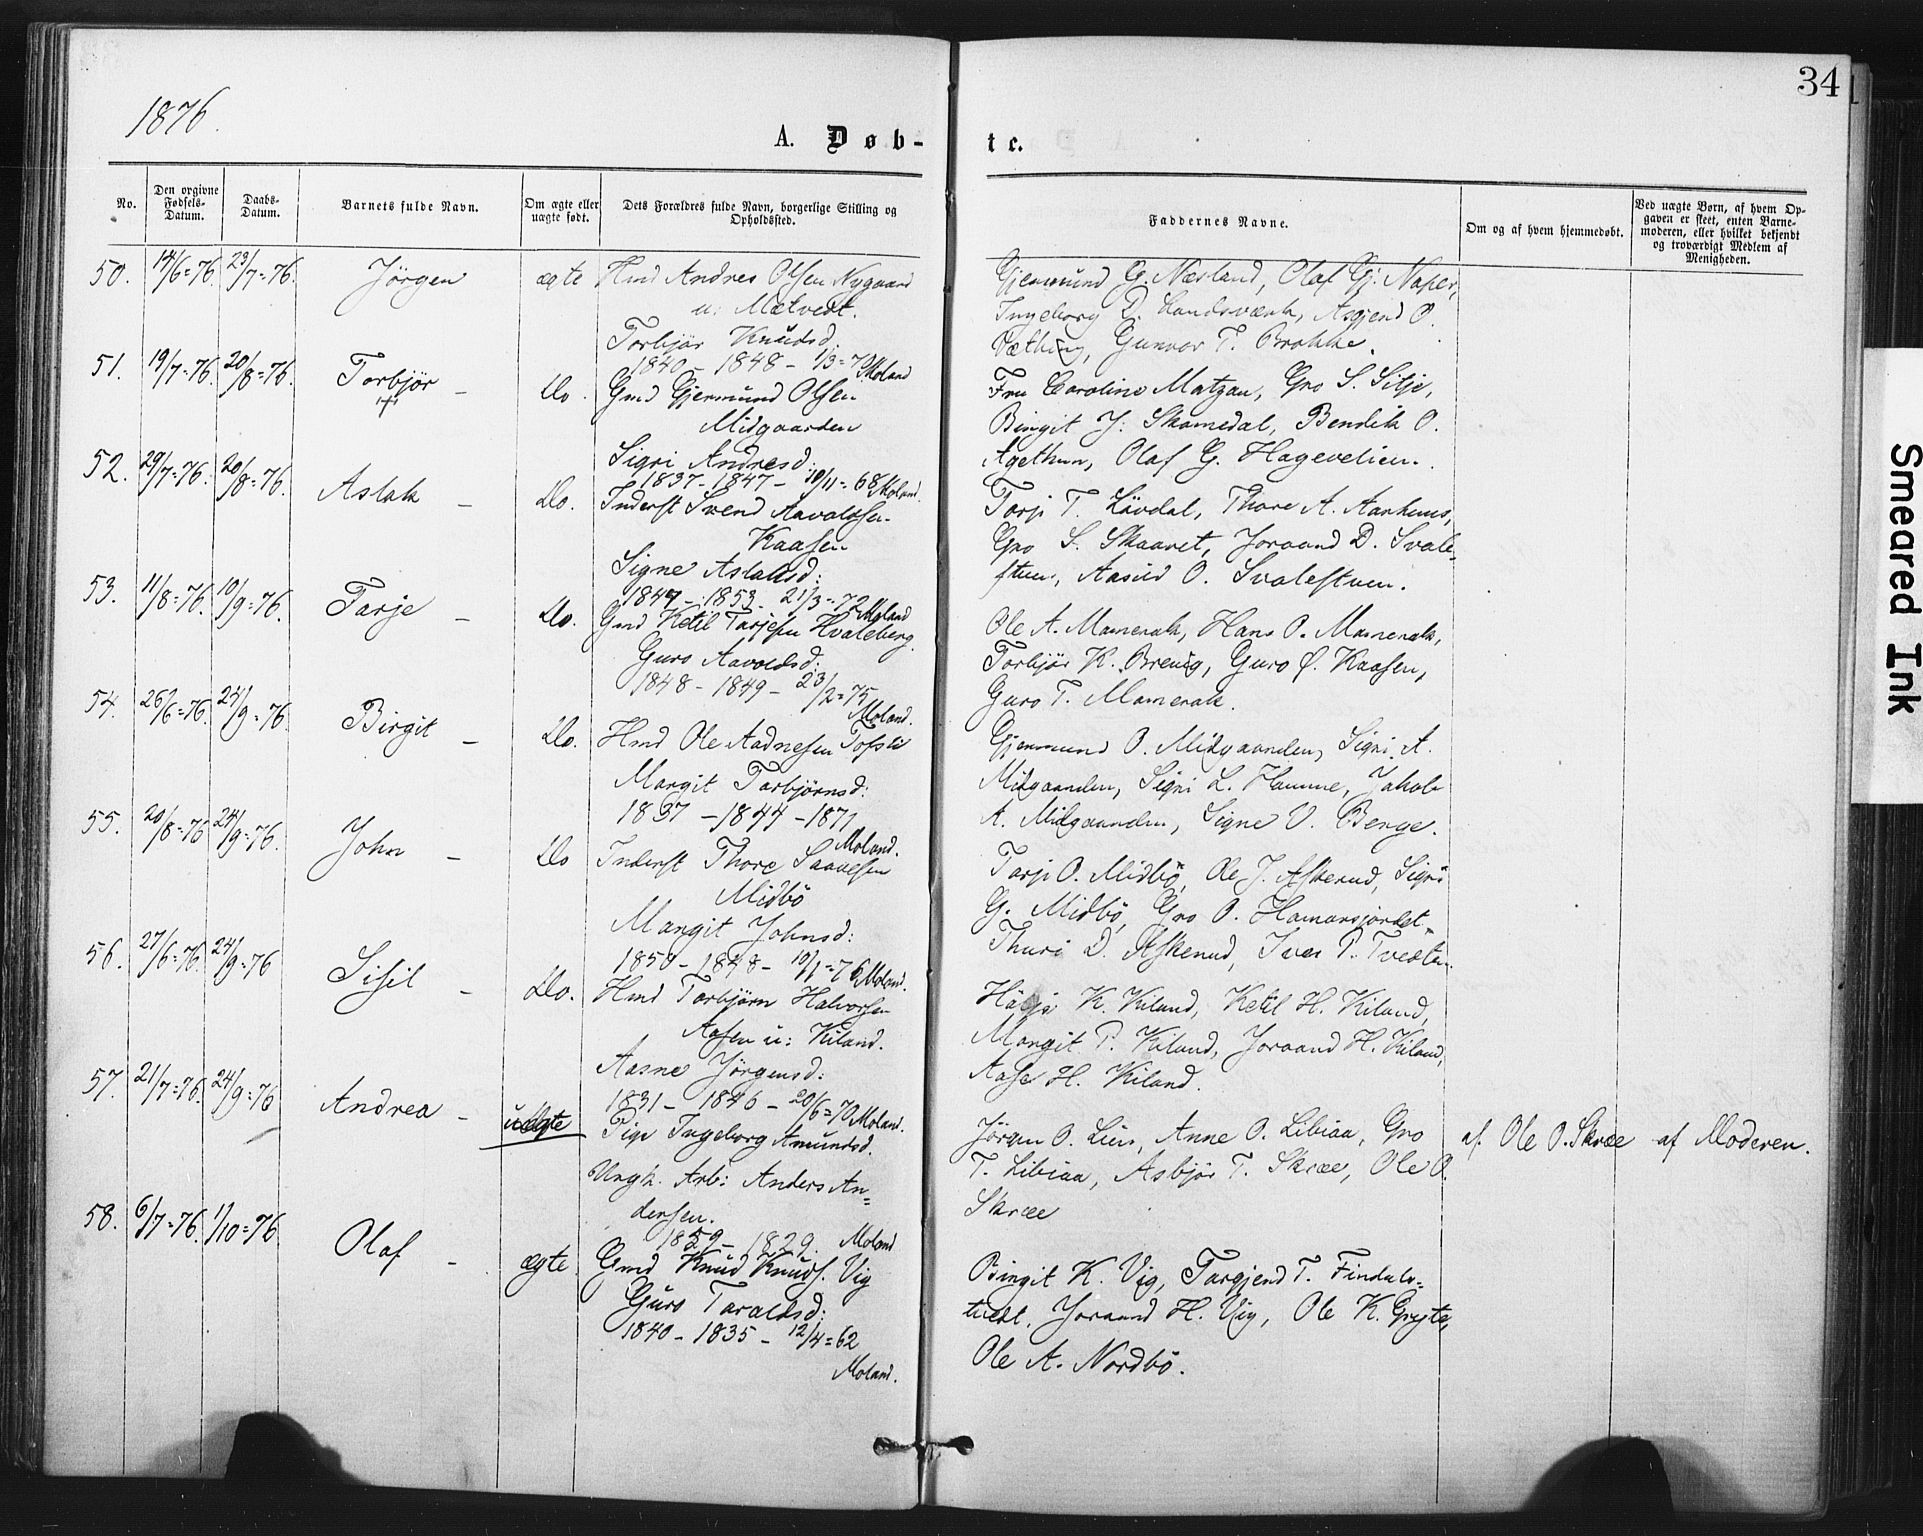 34
1876.
A. Døb-
te.
No.
Den opgivne Fødsels-Datum.
Daabs-Datum.
Barnets fulde Navn.
Om ægte eller uægte født.
Dets Forældres fulde Navn, borgerlige Stilling og Opholdssted.
Faddernes Navne.
Om og af hvem hjemmedøbt.
Ved uægte Børn, af hvem Op-
gaven er skeet, enten Barne-
moderen, eller hvilket bekjendt
og troværdigt Medlem af
Menigheden.
50. 14/6=76. 23/7=76. Jörgen ægte Hmd Andres Olsen Nygaard
u: Mætvedt.
Torbjör Knudsd.
1840 - 1848 - 1/3=70 Moland
Gjermund G. Næsland, Olaf Gj. Naper,
Ingeborg D. Landsværk, Asgjerd O.
Væthing, Gunvor T. Brokke.
51. 19/7=76. 20/8=76. Torbjör - Do. Gmd Gjermund Olsen
Midgaarden
Sigri Andresd.
1837 - 1847 - 10/11=68 Moland.
Fru Caroline Matzau, Gro S. Silje,
Birgit J: Skomedal, Bendik O.
Agethun, Olaf G. Hagevelien.
52. 29/7=76. 20/8=76. Aslak - Do. Inderst Svend Aavaldsen
Kaasen
Signe Aslaksd:
1847 - 1853 - 21/3=72 Moland
Torje T. Lövdal, Thore A. Aarhuus,
Gro S. Skaaret, Joraand D. Svale-
stuen, Aasild O. Svalestuen.
53. 11/8=76. 10/9=76. Tarje - Do. Gmd Ketil Tarjesen Hvaleberg.
Guro Aavoldsd:
1848 - 1849 - 23/2=75
Moland.
Ole A. Mamerak, Hans O. Mamerak,
Torbjör K. Brevig, Guro O. Kaasen,
Guro T. Mamerak.
54. 26/6=76. 24/9=76. Birgit - Do. Hmd Ole Aadnesen Tofsli
Margit Torbjörnsd:
1837 - 1844 - 1871
Moland.
Gjermund O. Midgaarden, Sigri A.
Midgaarden, Sigri L. Hamme, Jakob
A. Midgaarden, Signe V. Berge.
55. 20/8=76 24/9=76. John - Do Inderst Thore Saavesen
Midbö
Margit Johnsd:
1850 - 1848 - 10/1=76 Moland.
Tarje O. Midbö, Ole J. Askerud, Sigri
G. Midbö, Gro O. Hamarsjordet,
Thuri D. Askerud, Iver P. Tvedten.
56. 27/6=76. 24/9=76 Sisil - Do. Hmd Torbjörn Halvorsen
Aasen u: Kiland.
Aasne Jörgensd:
1831 - 1846 - 20/6=70 Moland.
K. Kiland, Ketil H. Kiland,
Margit P. Kiland, Joraand H. Kiland,
Aase H. Kiland.
57. 21/7=76. 24/9=76 Andrea - uægte Pige Ingeborg Amundsd.
Ungk. Arb: Anders An-
dersen.
1859 - 1829. Moland
Jörgen O. Lien, Anne O. Libiaa, Gro
T. Libiaa, Asbjör T. Skræe, Ole O.
Skræe
af Ole O. Skræe
af Moderen.
58. 6/7=76. 1/10=76 Olaf - ægte Gmd Knud Knuds. Vig
Guro Taraldsd:
1840 - 1835 - 12/4=62
Moland.
Birgit K. Vig, Targjerd T. Findals-
tvedt, Joraand H. Vig, Ole K. Grytes,
Ole A. Nordbö.
Smeared Ink